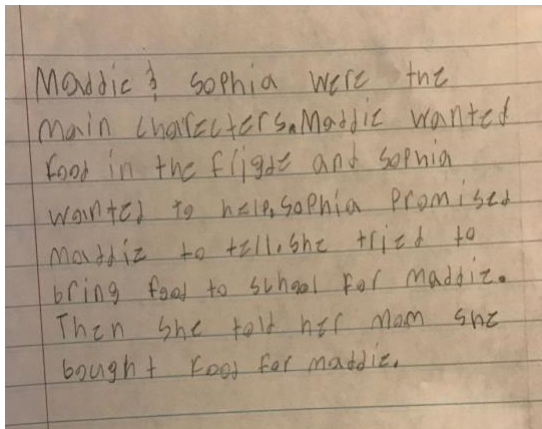 Maddie & Sophia were the
main charecters. Maddie wanted
food in the frigde and Sophia
wanted to help. Sophia promised
Maddie to tell. She tried to
bring food to school for maddie.
Then she told her mom she
bought food for maddie.